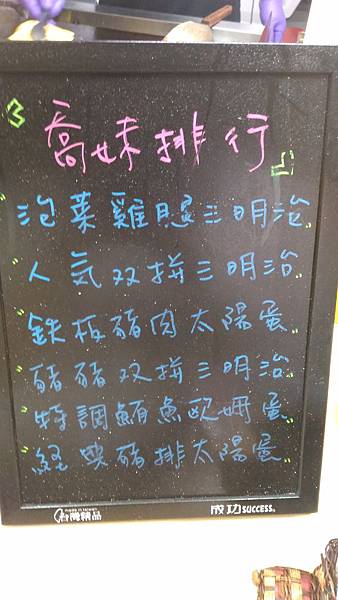 喬妹排行
泡菜雞腿三明治
人氣双拼三明治
鉄板豬肉太陽蛋
豬豬双拼三明治
特調鮪魚歐姆蛋
経典豬排太陽蛋
MADE IN TAIWAN
台灣精品
成功 SUCCESS